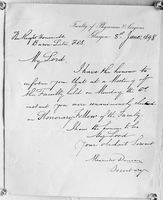 Faculty of Physicians & Surgeons
Glasgow 8th June 1898
The Right Honourable
Baron Lister
My Lord,
I have the honour to
inform you that at a Meeting of
the Faculty held on Monday the 6th
instant you were unanimously elected
an Honorary Fellow of the Faculty.
I have the honour to be
My Lord
Your obedient Servant
Alexander Duncan
Secretary